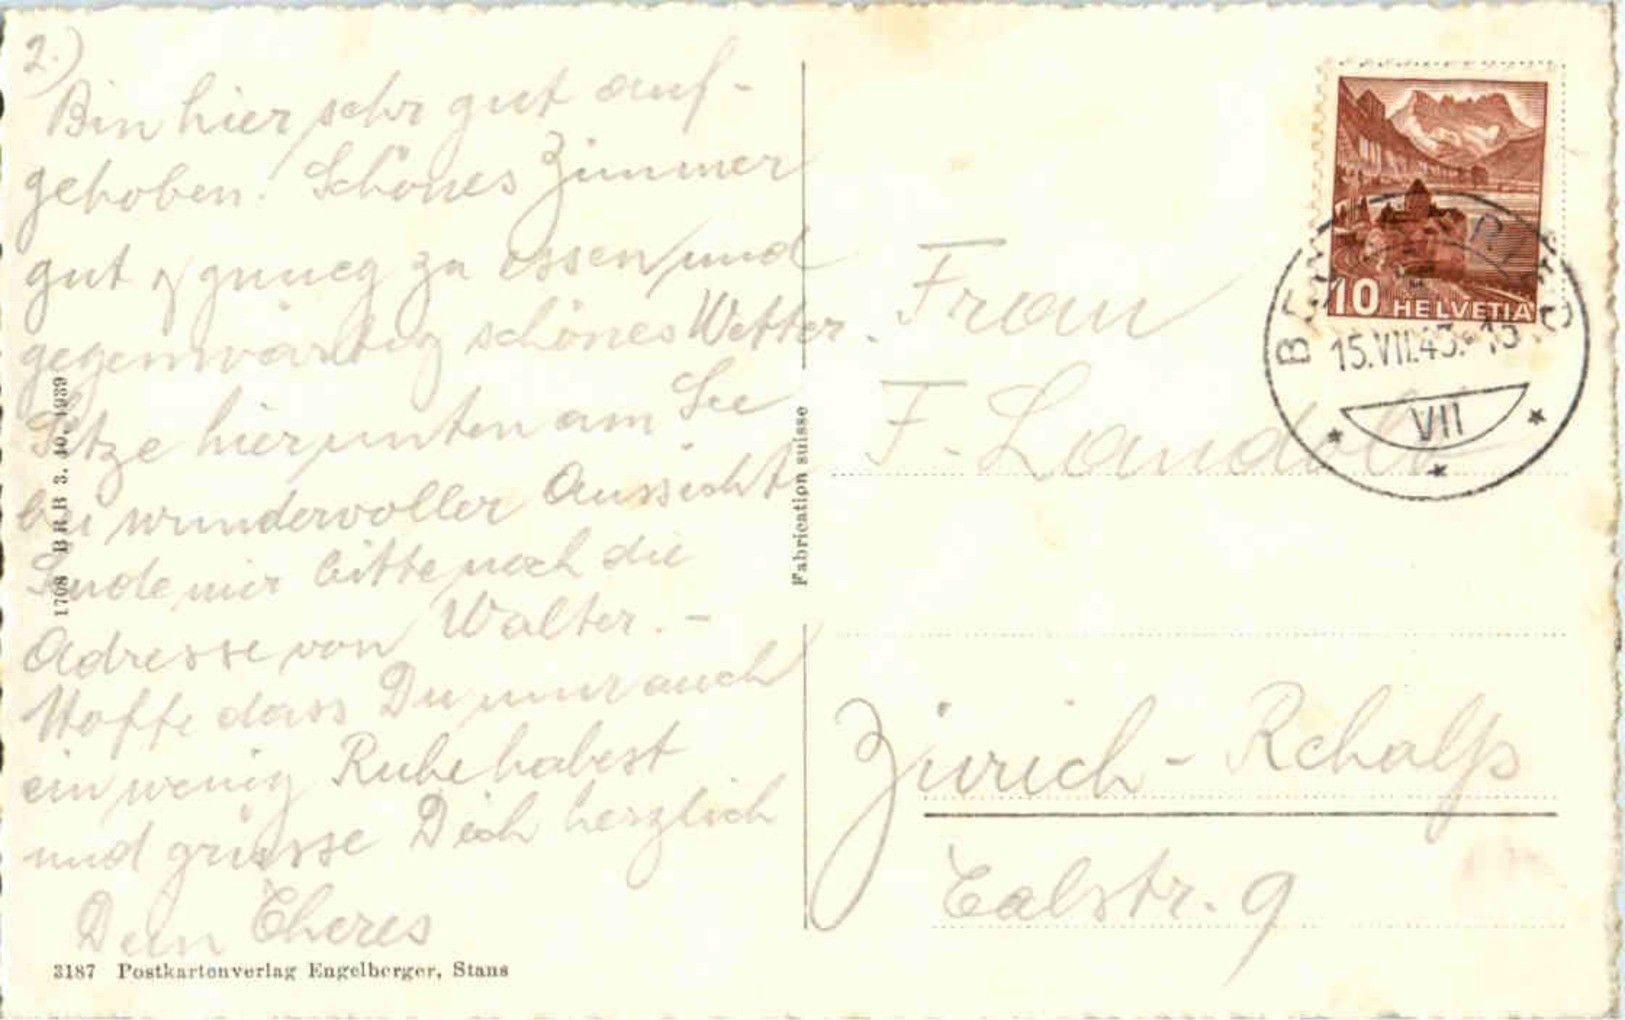 2.)
Bin hier sehr gut auf-
gehoben. Schönes Zimmer
gut & gnueg zu essen und
gegenwärtig schönes Wetter.
Sitze hier unten am See
bei wundervoller Aussicht
Sende mir bitte noch die
Adresse von Walter. -
Hoffe dass Du nun auch
ein wenig Ruhe habest
und grüsse Dich herzlich
Dein Theres
3187 Postkartenverlag Engelberger, Stans
1708 BRB 3. 10. 1939
Fabrication suisse
10 HELVETIA
15.VII.43.-13
VII
Frau
F. Landolt
Zürich - Rehalp
Ealstr. 9